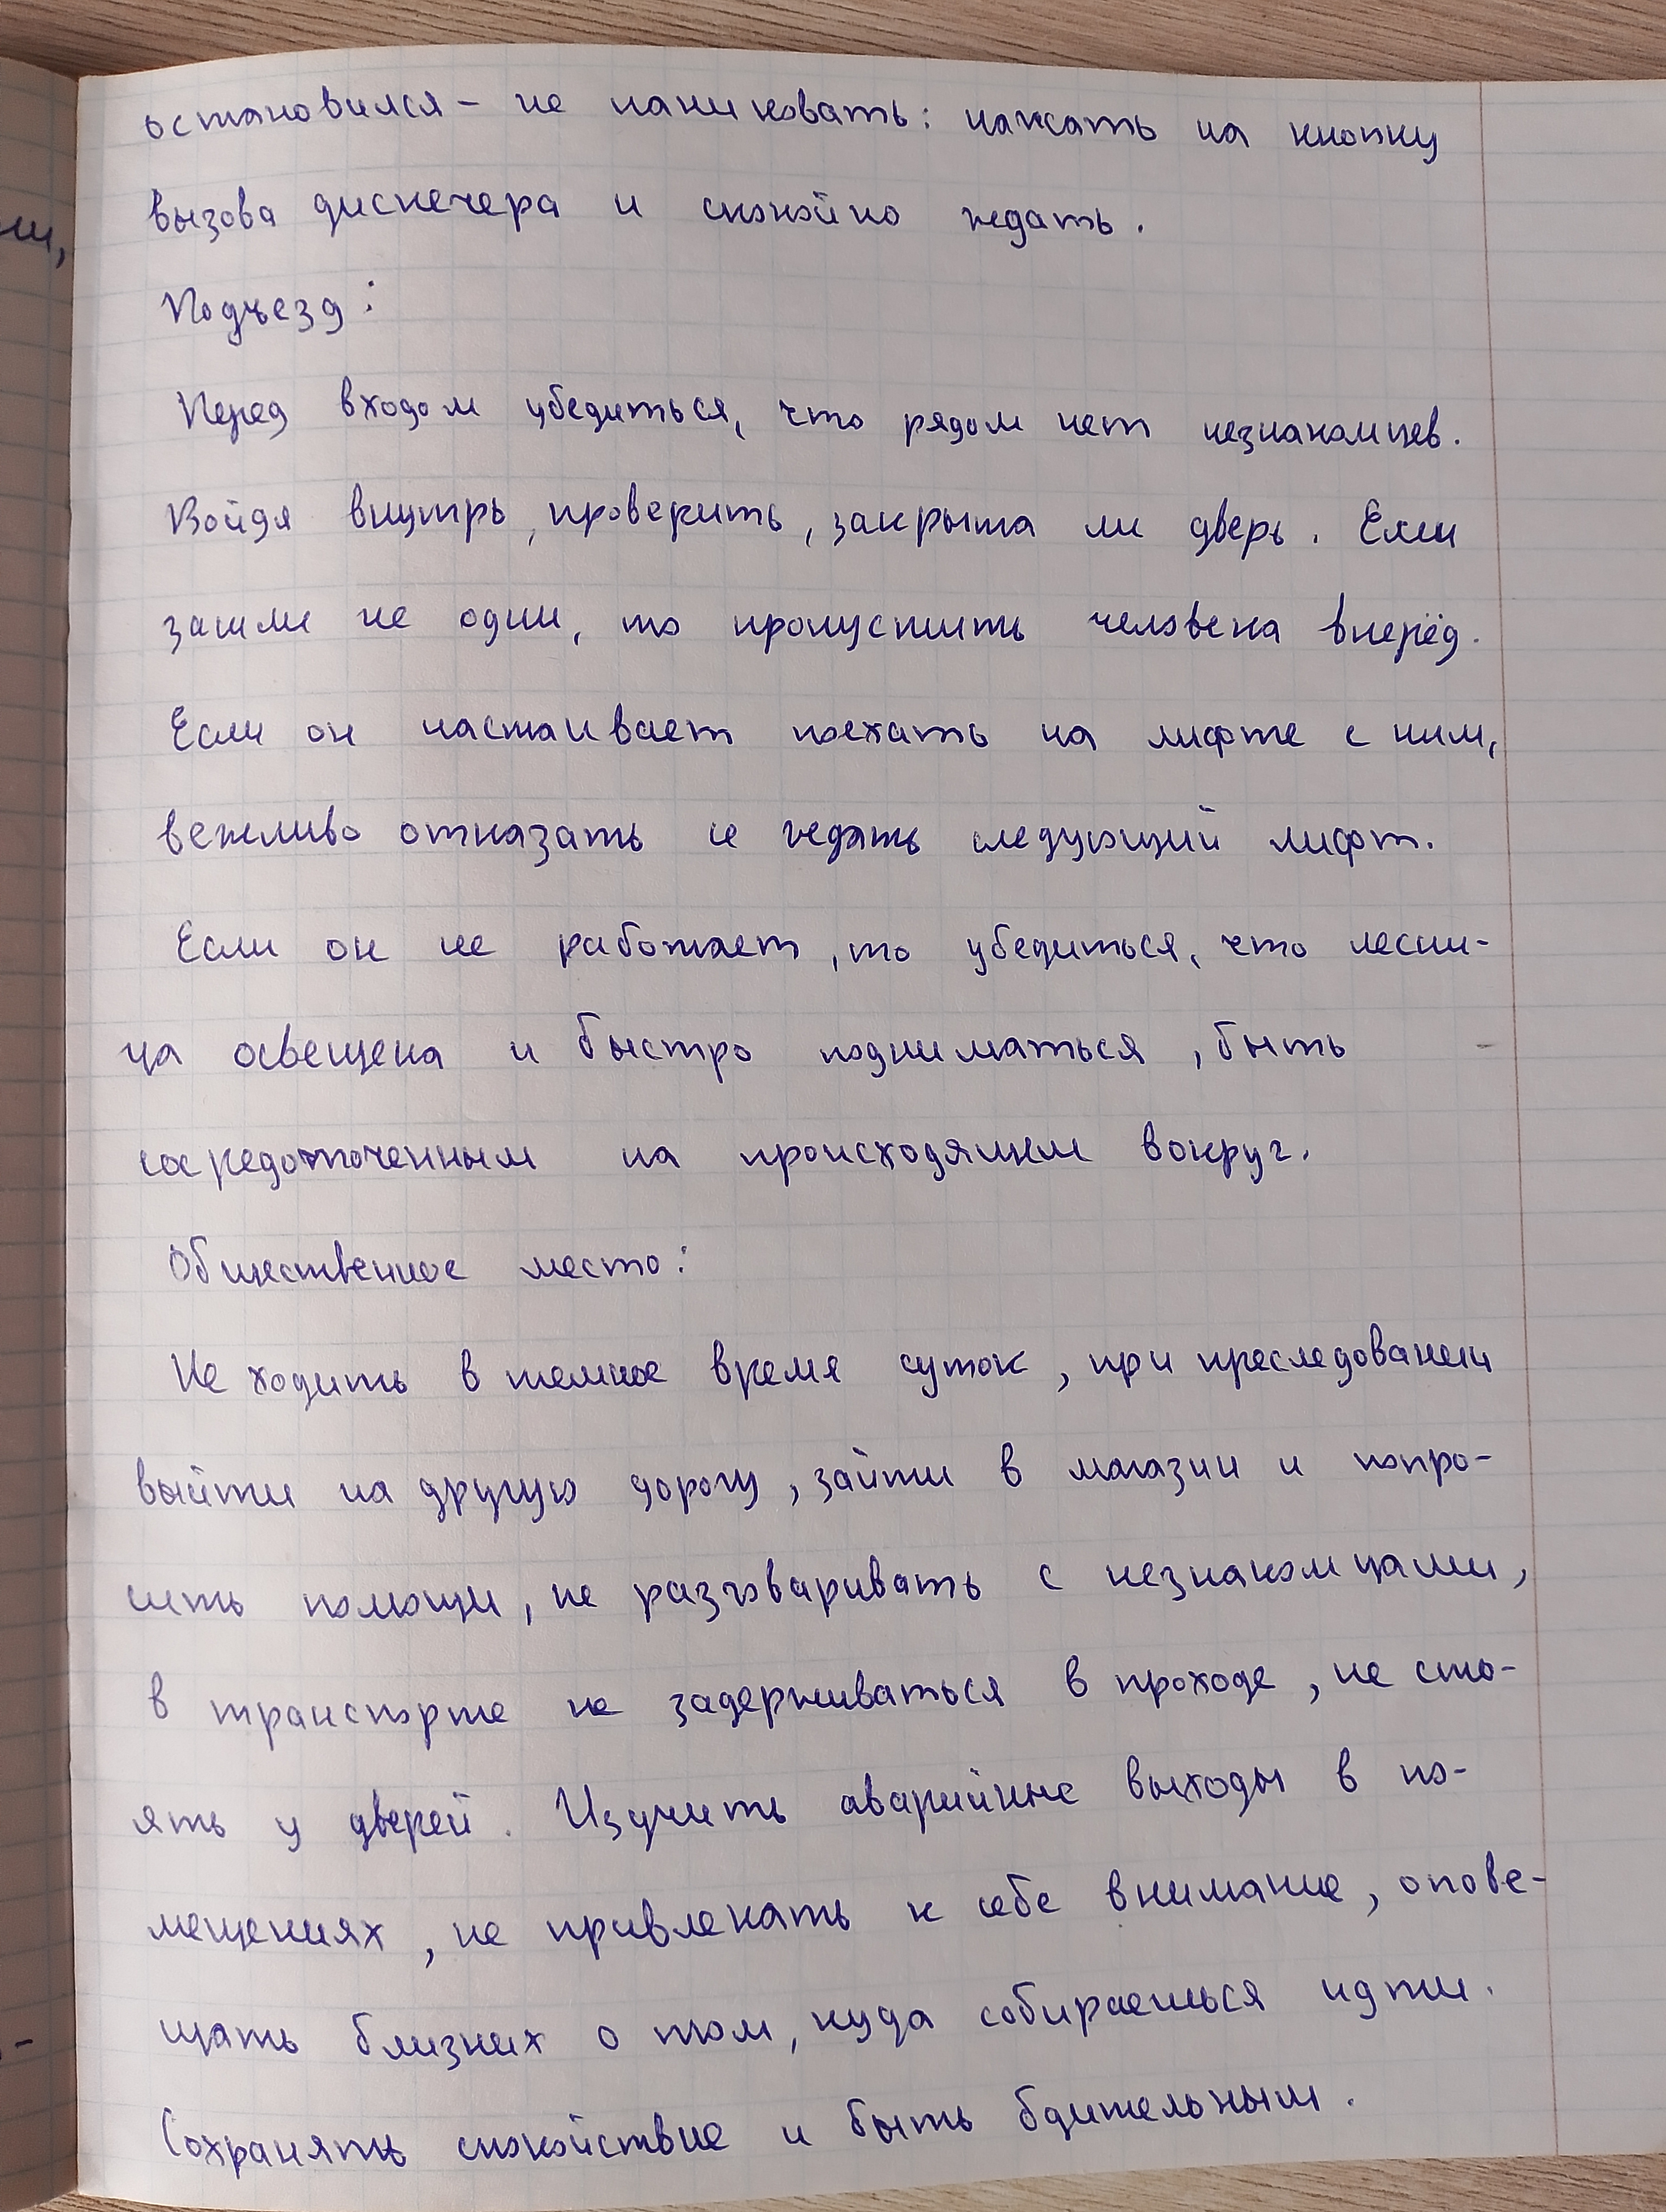 остановился – не паниковать: нажать на кнопку
вызова диспечера и спокойно ждать.
Подъезд:
Перед входом убедиться, что рядом нет незнакомцев.
Войдя внутрь, проверить, закрыта ли дверь. Если
зашли не одни, то пропустить человека вперёд.
Если он настаивает поехать на лифте с ним,
вежливо отказать и ждать следующий лифт.
Если он не работает, то убедиться, что лесни-
ца освещена и быстро подниматься, быть
сосредоточенным на происходящем вокруг.
Общественное место:
Не ходить в темное время суток, при преследовании
выйти на другую дорогу, зайти в магазин и попро-
сить помощи, не разговаривать с незнакомцами,
в транспорте не задерживаться в проходе, не сто-
ять у дверей. Изучить аварийные выходы в по-
мещениях, не привлекать к себе внимание, опове-
щать близких о том, куда собираешься идти.
Сохранять спокойствие и быть бдительным.